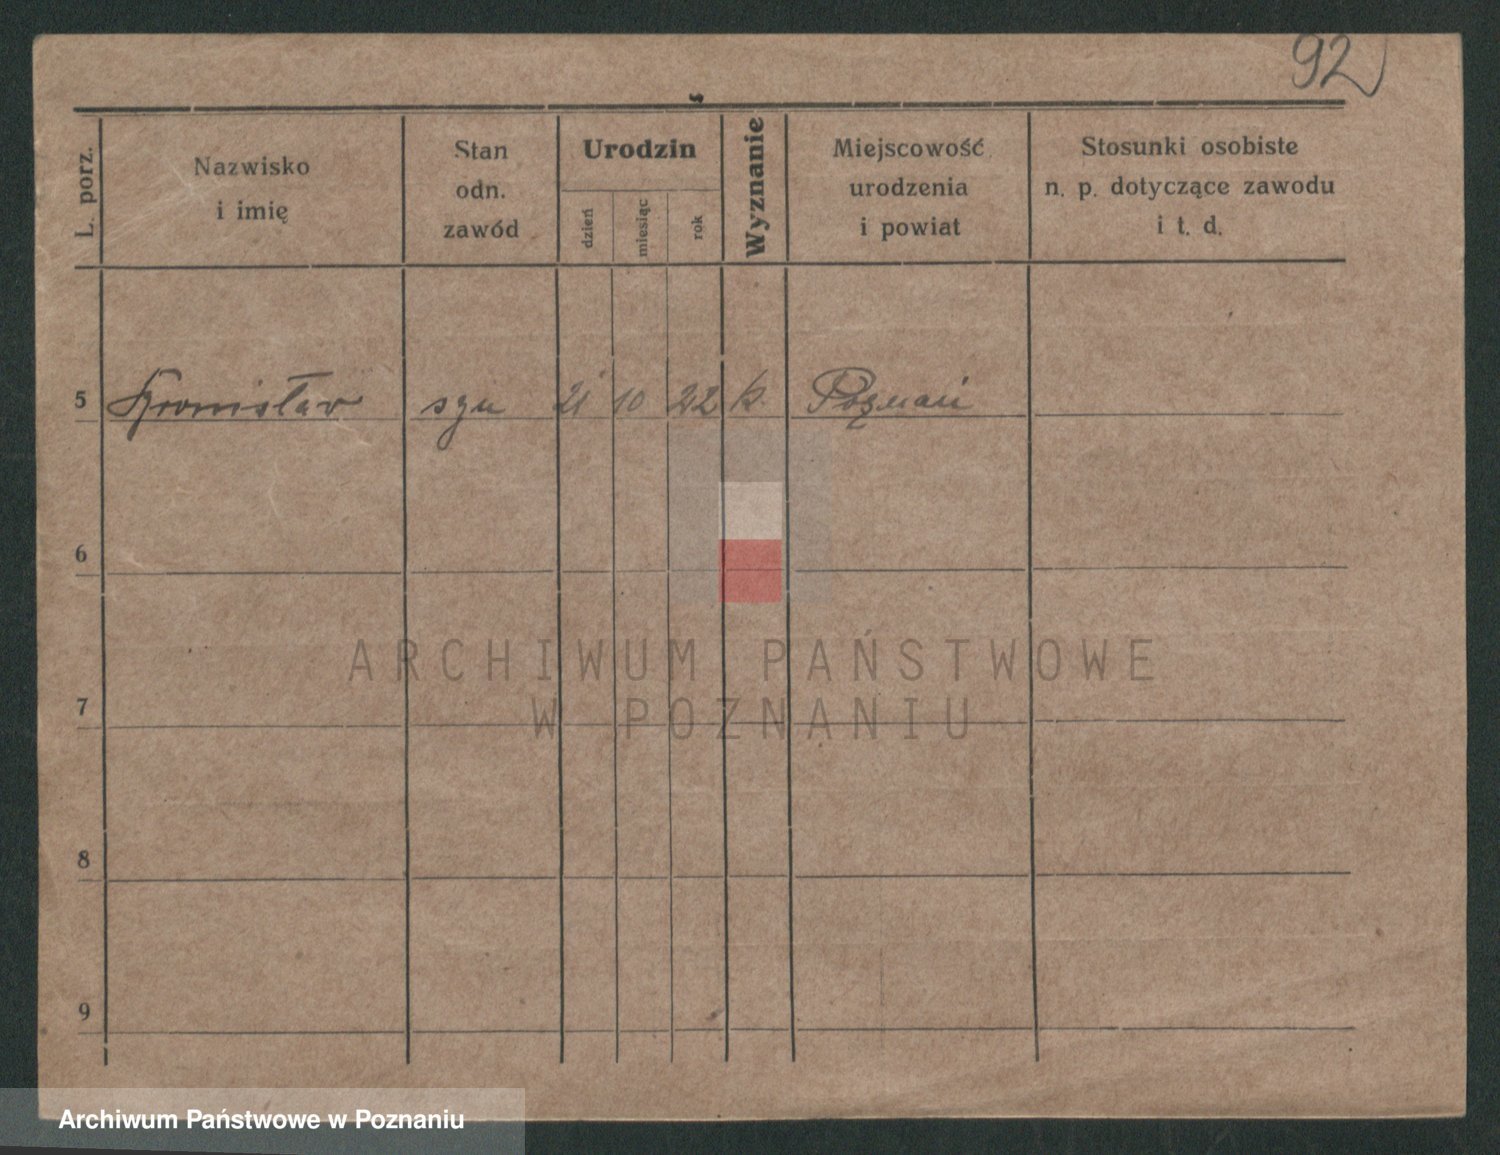 92
L. porz.
Nazwisko
i imię
Stan
odn.
zawód
Urodzin
dzień
miesiąc
rok
Wyznanie
Miejscowość
urodzenia
i powiat
Stosunki osobiste
n. p. dotyczące zawodu
i t. d.
5 Bronisław syn 21 10 22 k. Poznań
6
7
8
9
ARCHIWUM PAŃSTWOWE
W POZNANIU
Archiwum Państwowe w Poznaniu